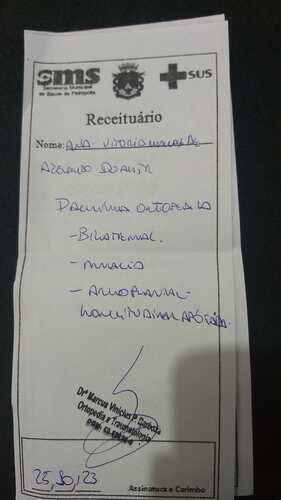 sms
Secretaria Municipal
de Saúde de Petrópolis
SUS
Receituário
Nome: ANA VITORIA
AZEVEDO DUARTE
PALMILHA ORTOPEDICA
- BILATERAL
- MACIA
- ARCO PLANTAR
LONGITUDINAL APOIADO.
Drº Marcus Vinicius C Barbosa
Ortopedia e Traumatologia
25, 10, 23
Assinatura e Carimbo